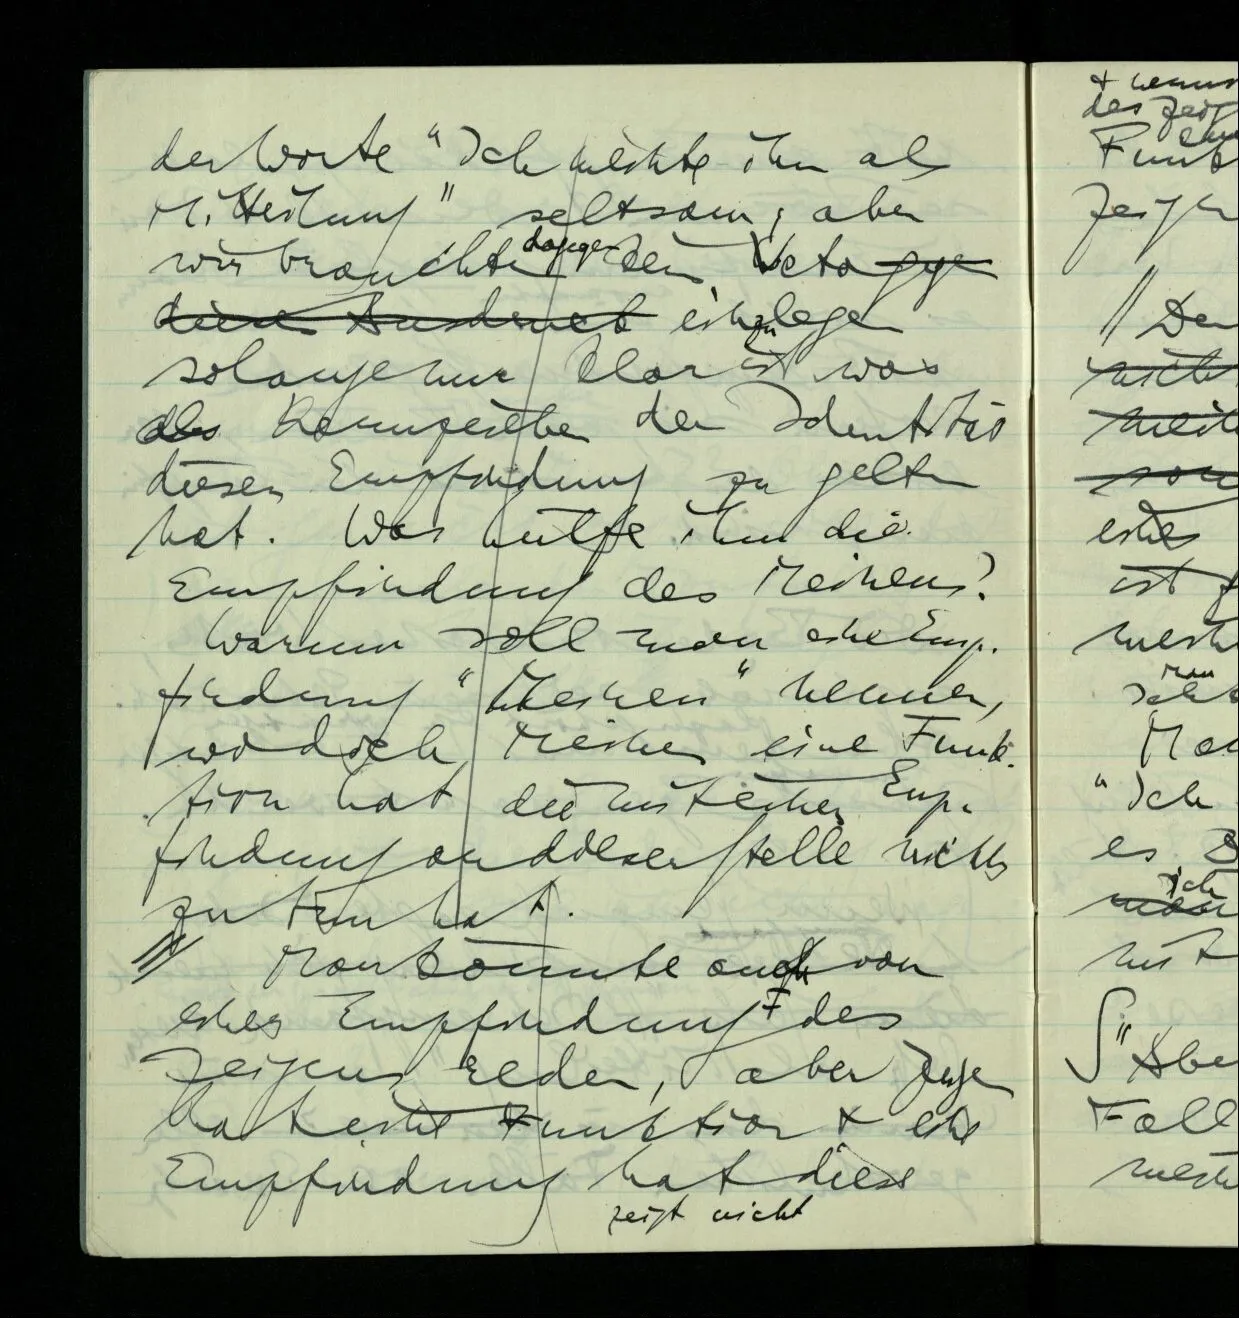 der Worte "Ich meinte ihn als
Mitteilung" seltsam; aber
wir brauchten dagegen kein Veto gegen
diesen Ausdruck einzulegen
solange nur klar ist was
als Kennzeichen der Identität
dieser Empfindung zu gelten
hat. Was hülfe ihm die
Empfindung des Meinens?
Warum soll man eine Emp-
findung "Meinen" nennen,
wo doch Meinen eine Funk-
tion hat die mit einer Emp-
findung an dieser Stelle nichts
zu tun hat.
// Man könnte auch von
einer Empfindung des
Zeigens reden, aber Zeigen
hat eine Funktion + eine
Empfindung hat diese
zeigt nicht
des
Funk
// Den
nicht
eines
ist
man
"Ich
es
ich
man
mit
∫ " Abe
Fall